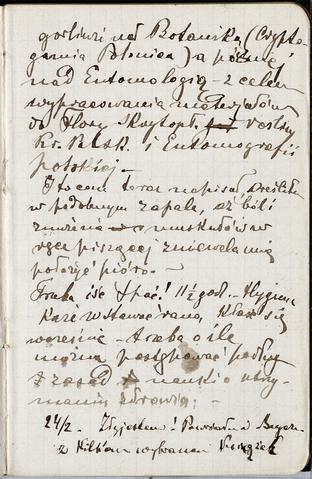 gorliwiej nad Botaniką (Crypto-
gamia Polonica) a później
nad Entomologią – z celem
wypracowania materyałów
do Flory skrytopł. roślin
Kr. Polsk. i Entomografii
polskiej –
I to com teraz napisał
w podobnym zapale, aż ból i
znużenie muskułów w
ręce piszącej zniewala mię
położyć pióro. –
Trzeba iść spać! 11½ god. – Hygiena
każe wstawać rano, kłaść się
wcześnie – trzeba o ile
można postępować podług
zasad nauki o utrzy-
maniu zdrowia. –
24/2. Zdjąłem! Powództwa
z wybranem